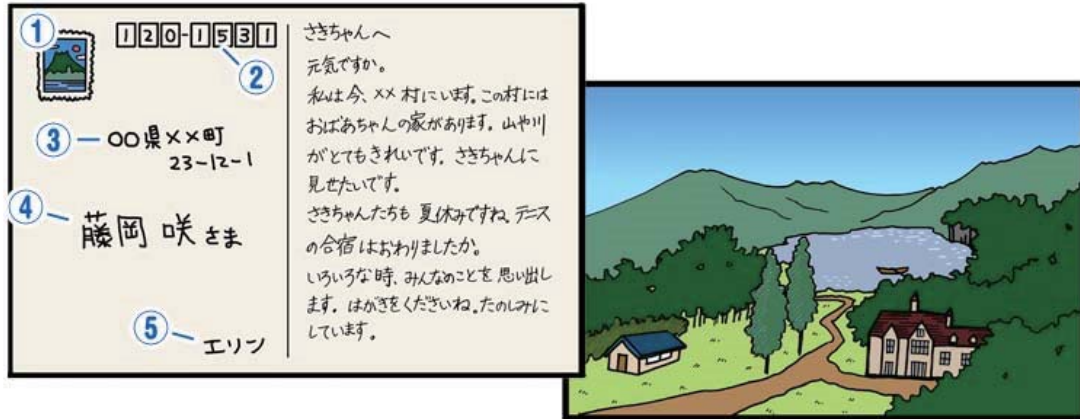 ①
120-1531
②
③
○○県××町
23-12-1
④
藤岡 咲さま
⑤
エリン
さきちゃんへ
元気ですか。
私は今、××村にいます。この村には
おばあちゃんの家があります。山や川
がとてもきれいです。さきちゃんに
見せたいです。
さきちゃんたちも 夏休みですね。テニス
の合宿はおわりましたか。
いろいろな時、みんなのことを思い出し
ます。はがきをくださいね。たのしみに
しています。